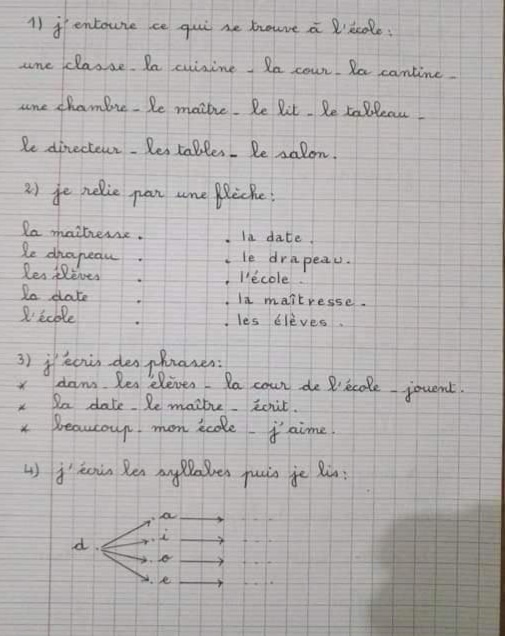 1) j'entoure ce qui se trouve à l'école :
une classe - la cuisine - la cour - la cantine -
une chambre - le maître - le lit - le tableau -
le directeur - les tables - le salon.
2) je relie par une flèche :
la maîtresse . . la date .
le drapeau . . le drapeau .
les élèves . . l'école .
la date . . la maîtresse .
l'école . . les élèves .
3) j'écris des phrases :
* dans - les élèves - la cour de l'école - jouent .
* la date - le maître - écrit .
* beaucoup - mon école - j'aime .
4) j'écris les syllabes puis je lis :
a → ...
d i → ...
o → ...
e → ...